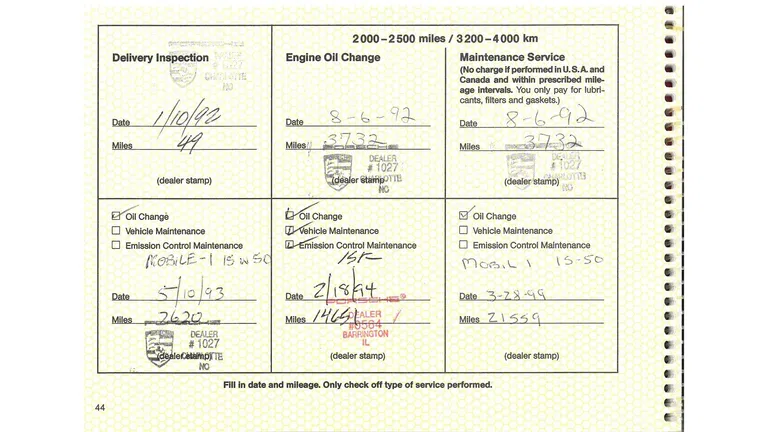 2000–2500 miles / 3200–4000 km
Delivery Inspection
DEALER
# 1027
CHARLOTTE
NC
Date 1/10/92
Miles 49
(dealer stamp)
Engine Oil Change
Date 8-6-92
Miles 3732
DEALER
# 1027
CHARLOTTE
NC
(dealer stamp)
Maintenance Service
(No charge if performed in U.S.A. and
Canada and within prescribed mile-
age intervals. You only pay for lubri-
cants, filters and gaskets.)
Date 8-6-92
Miles 3732
DEALER
# 1027
CHARLOTTE
NC
(dealer stamp)
Oil Change
Vehicle Maintenance
Emission Control Maintenance
MOBILE-1 15W50
Date 5/10/93
Miles 7620
DEALER
# 1027
CHARLOTTE
NC
(dealer stamp)
Oil Change
Vehicle Maintenance
Emission Control Maintenance
15K
Date 2/18/94
Miles 14651
PORSCHE
DEALER
#3564
BARRINGTON
IL
(dealer stamp)
Oil Change
Vehicle Maintenance
Emission Control Maintenance
MOBIL 1 15-50
Date 3-28-99
Miles 21559
(dealer stamp)
Fill in date and mileage. Only check off type of service performed.
44